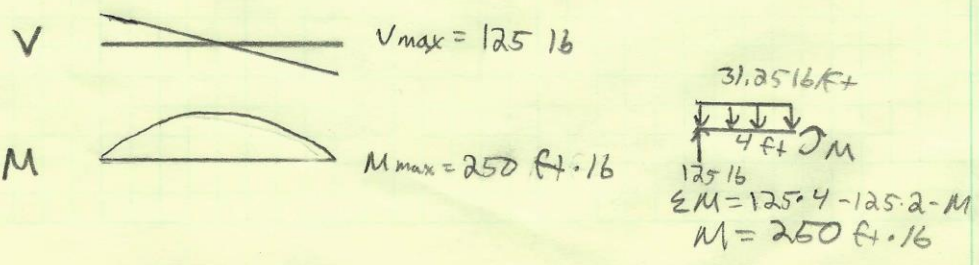 V
Vmax = 125 lb
M
Mmax = 250 ft·lb
31.25 lb/ft
4 ft M
125 lb
ΣM = 125·4 - 125·2 - M
M = 250 ft·lb